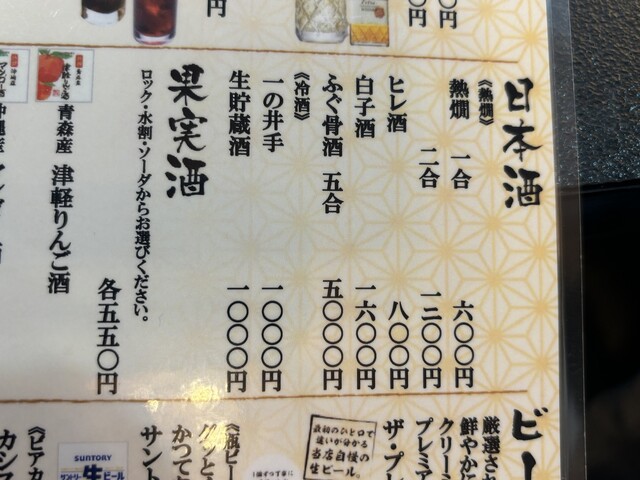 円
〇〇円
〇円
日本酒
《熱燗》
熱燗 一合 六〇〇円
二合 一二〇〇円
ヒレ酒 八〇〇円
白子酒 一六〇〇円
ふぐ骨酒 五合 五〇〇〇円
《冷酒》
一の井手 一〇〇〇円
生貯蔵酒 一〇〇〇円
果実酒
ロック・水割・ソーダからお選びください。
青森産 津軽りんご酒
各五五〇円
ビー
厳選さ
鮮やかに
クリーミ
プレミア
ザ・プレ
最初のひと口で
違いが分かる
当店自慢の
生ビール。
《瓶ビー
グッと
かつて
サント
SUNTORY
サントリー生ビール
《ビアカ
カシス